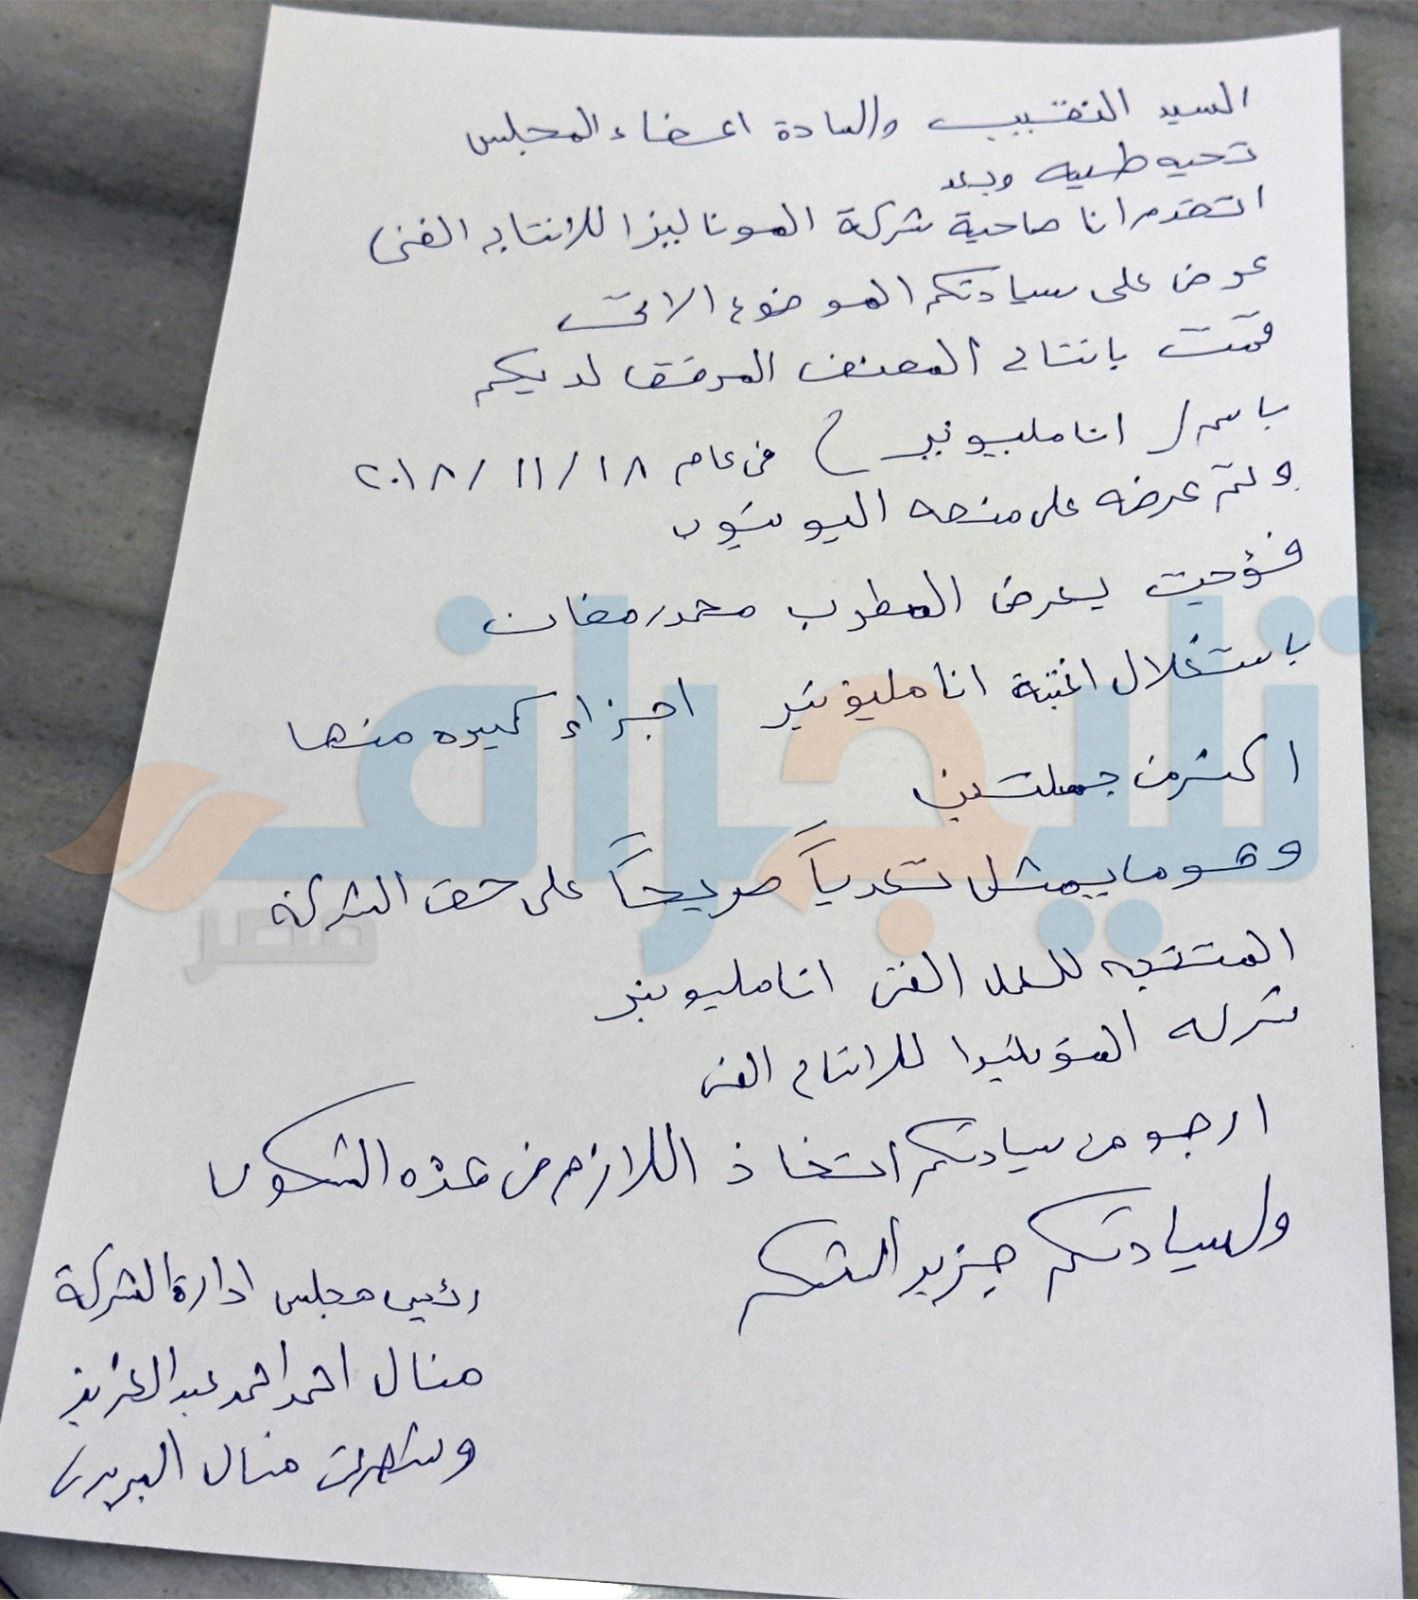 السيد النقيب والسادة اعضاء المجلس
تحيه طيبه وبعد
اتقدم انا صاحبة شركة الموناليزا للانتاج الفنى
عرض على سيادتكم الموضوع الاتى
قمت بانتاج المصنف المرفق لديكم
باسم / انا مليونير ) فى عام ٢٠١٨/١١/١٨
وتم عرضه على منصه اليوتيوب
فؤجيت بعرض المطرب محمد رمضان
باستغلال اغنية انا مليونير اجزاء كبيره منها
اكثر من جملتين
وهو ما يمثل تعدياً صريحاً على حق الشركة
المنتجه للعمل الفنى انا مليونير
شركه الموناليزا للانتاج الفنى
ارجو من سيادتكم اتخاذ اللازم فى هذه الشكوى
ولسيادتكم جزيل الشكر
رئيس مجلس ادارة الشركة
منال احمد احمد عبد العزيز
وشهرتى منال البريرى
تليجراف
مصر